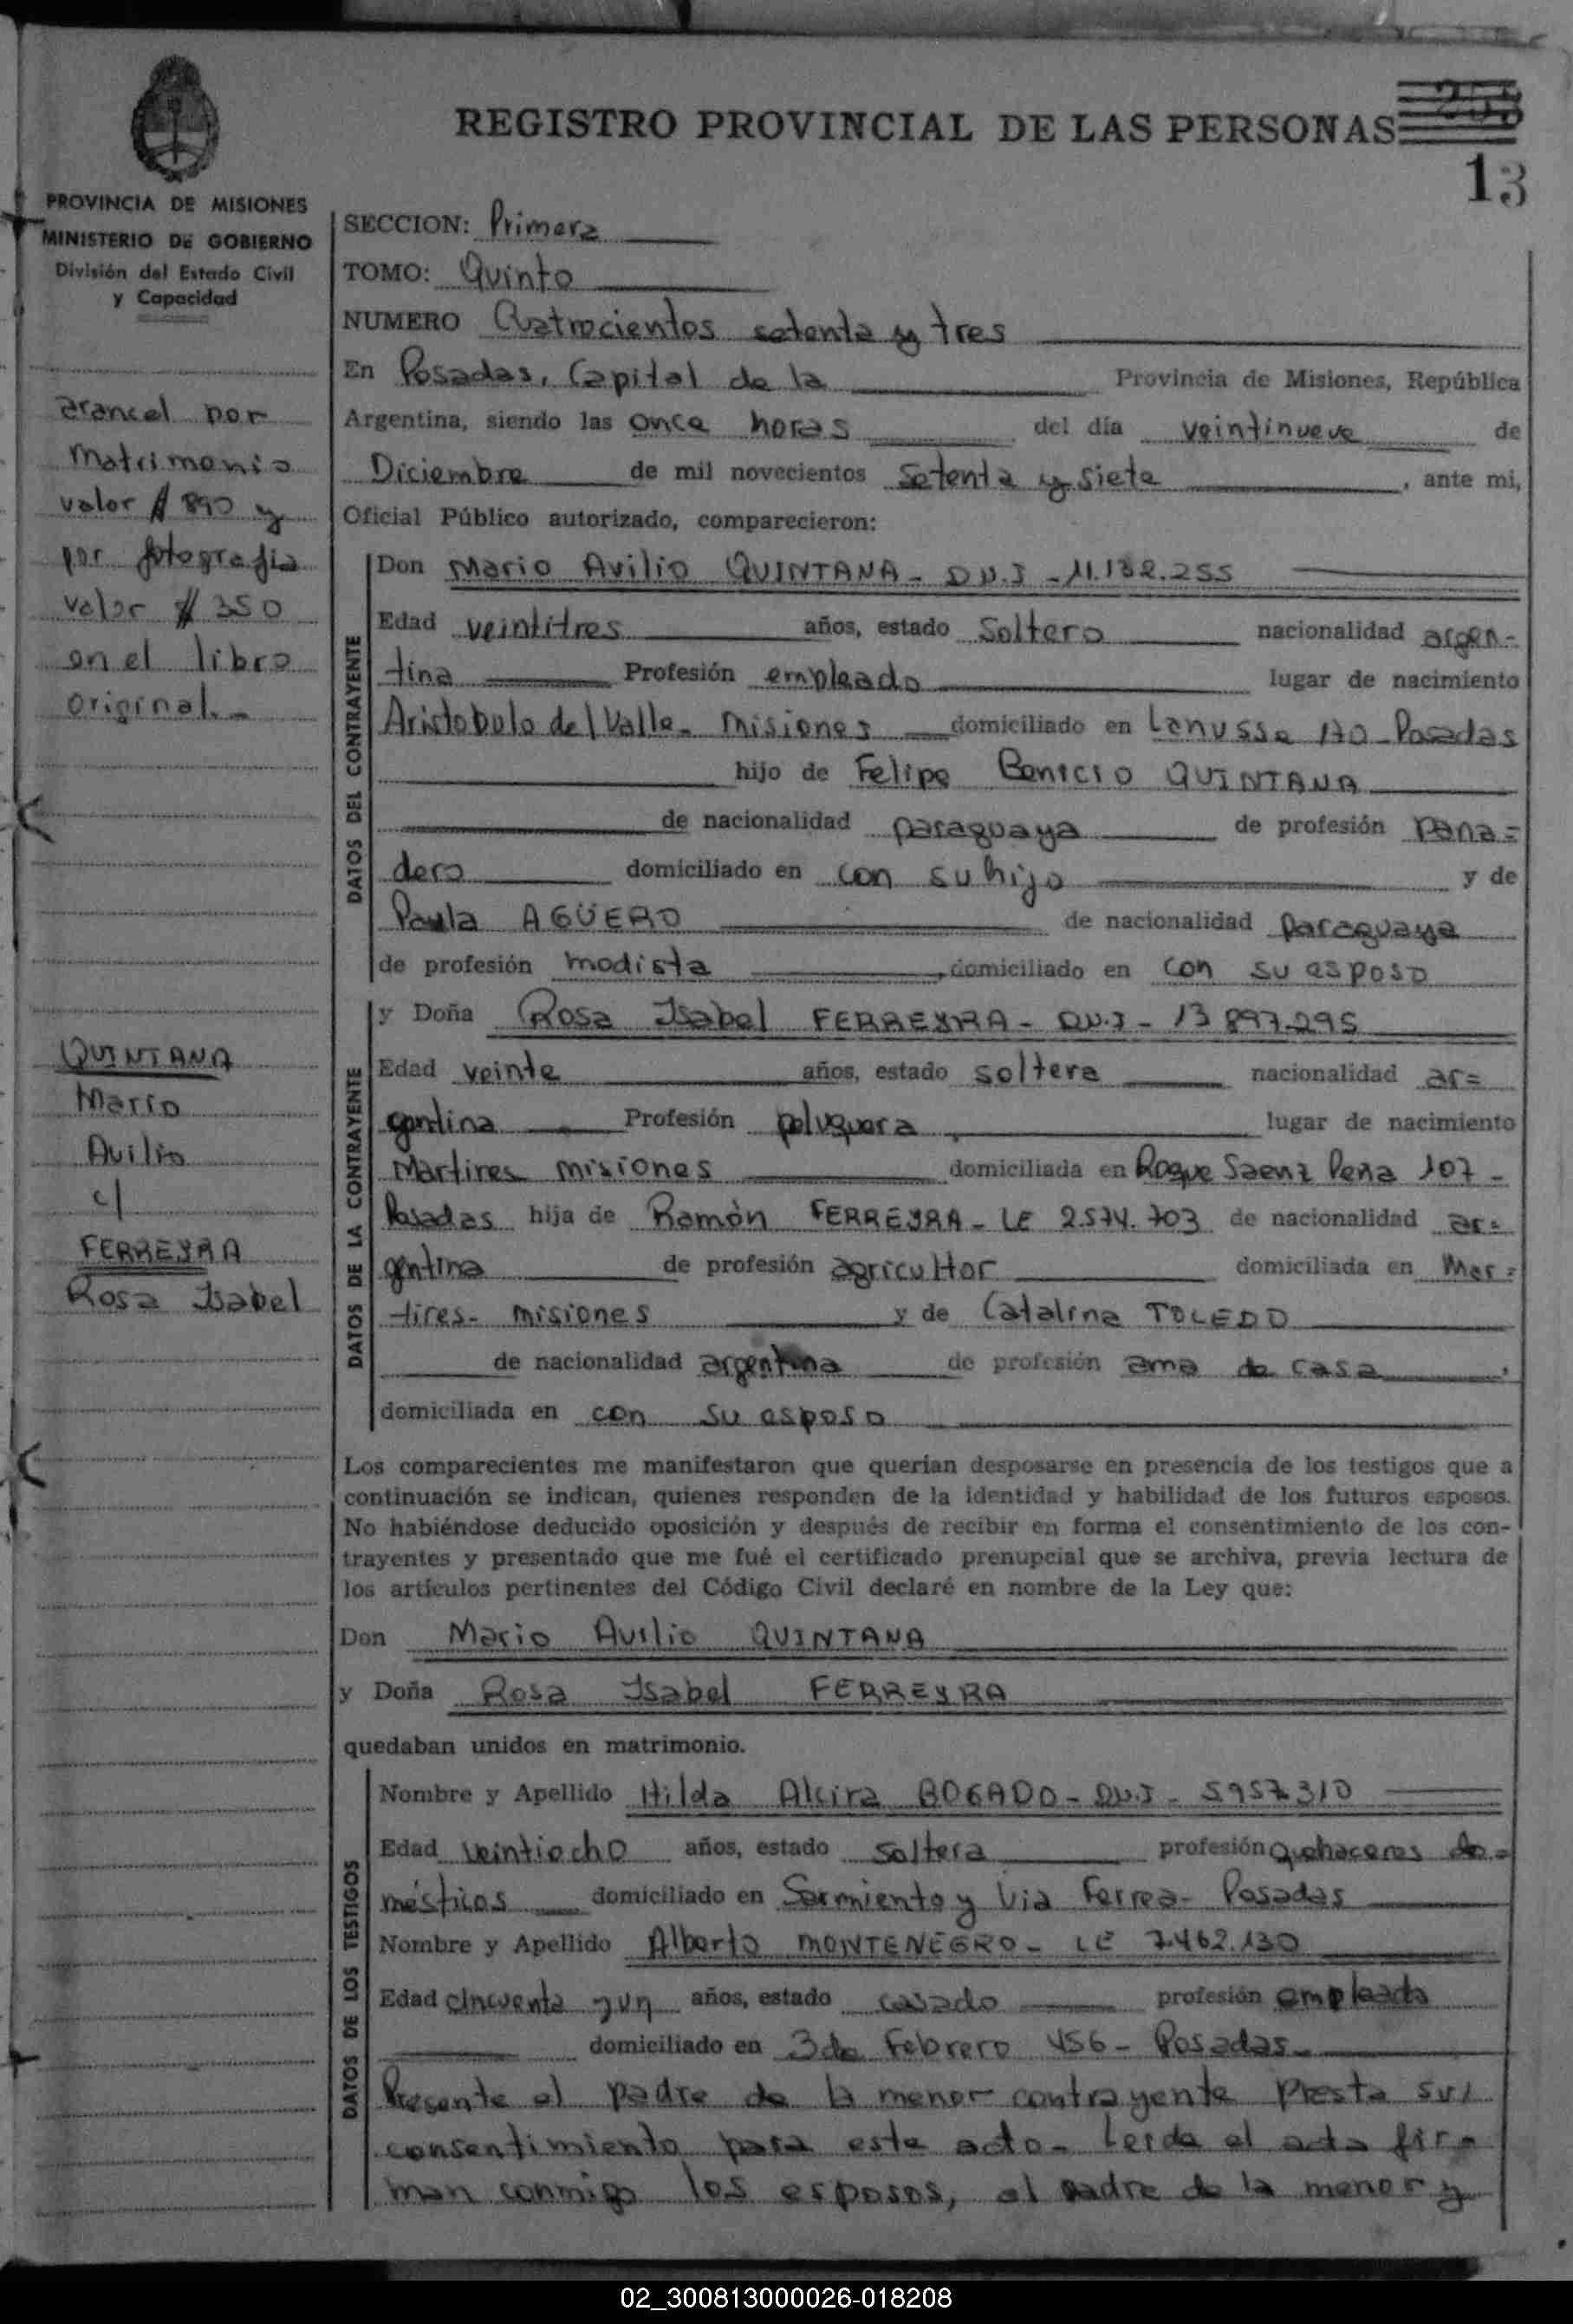 REGISTRO PROVINCIAL DE LAS PERSONAS
13
PROVINCIA DE MISIONES
MINISTERIO DE GOBIERNO
División del Estado Civil
y Capacidad
arancel por
Matrimonio
valor $ 890 y
por fotografia
valor $ 350
en el libro
original.-
QUINTANA
Mario
Avilio
c/
FERREYRA
Rosa Isabel
SECCION: Primera
TOMO: Quinto
NUMERO Cuatrocientos setenta y tres
En Posadas, Capital de la Provincia de Misiones, República
Argentina, siendo las once horas del día veintinueve de
Diciembre de mil novecientos setenta y siete, ante mi,
Oficial Público autorizado, comparecieron:
DATOS DEL CONTRAYENTE
Don Mario Avilio QUINTANA - D.N.I - 11.132.255
Edad veintitres años, estado soltero nacionalidad argen=
tina Profesión empleado lugar de nacimiento
Aristobulo del Valle - Misiones domiciliado en Lanusse 170 - Posadas
hijo de Felipe Benicio QUINTANA
de nacionalidad paraguaya de profesión pana=
dero domiciliado en con su hijo y de
Paula AGÜERO de nacionalidad paraguaya
de profesión modista, domiciliado en con su esposo
DATOS DE LA CONTRAYENTE
y Doña Rosa Isabel FERREYRA - D.N.I - 13 897.295
Edad veinte años, estado soltera nacionalidad ar=
gentina Profesión peluquera lugar de nacimiento
Martires Misiones domiciliada en Roque Saenz Peña 107 -
Posadas hija de Ramón FERREYRA - LE 2.574.703 de nacionalidad ar=
gentina de profesión agricultor domiciliada en Mar=
tires - Misiones y de Catalina TOLEDO
de nacionalidad argentina de profesión ama de casa,
domiciliada en con su esposo
Los comparecientes me manifestaron que querían desposarse en presencia de los testigos que a
continuación se indican, quienes responden de la identidad y habilidad de los futuros esposos.
No habiéndose deducido oposición y después de recibir en forma el consentimiento de los con-
trayentes y presentado que me fué el certificado prenupcial que se archiva, previa lectura de
los artículos pertinentes del Código Civil declaré en nombre de la Ley que:
Don Mario Avilio QUINTANA
y Doña Rosa Isabel FERREYRA
quedaban unidos en matrimonio.
DATOS DE LOS TESTIGOS
Nombre y Apellido Hilda Alcira BOGADO - D.N.I - 5957.310
Edad veintiocho años, estado soltera profesión quehaceres do=
mésticos domiciliado en Sarmiento y Via Ferrea - Posadas
Nombre y Apellido Alberto MONTENEGRO - LE 7.462.130
Edad cincuenta y un años, estado casado profesión empleado
domiciliado en 3 de Febrero 456 - Posadas -
Presente el padre de la menor contrayente presta su
consentimiento para este acto - Leida el acta fir=
man conmigo los esposos, el padre de la menor y
02_300813000026-018208